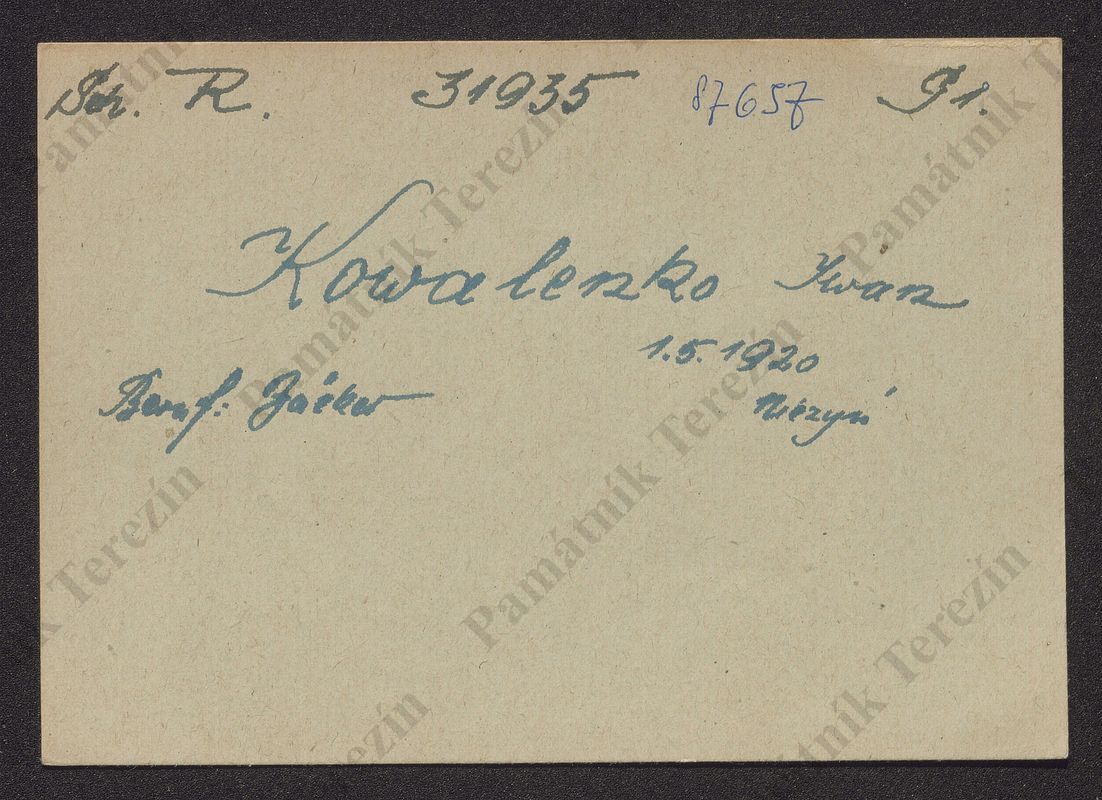 Sch. R. 31935 87657
Kowalenko Iwan
1.5.1920
Beruf: Bäcker Niezyń
Památník Terezín
Památník Terezín
Památník Terezín
Památník Terezín
Památník Terezín